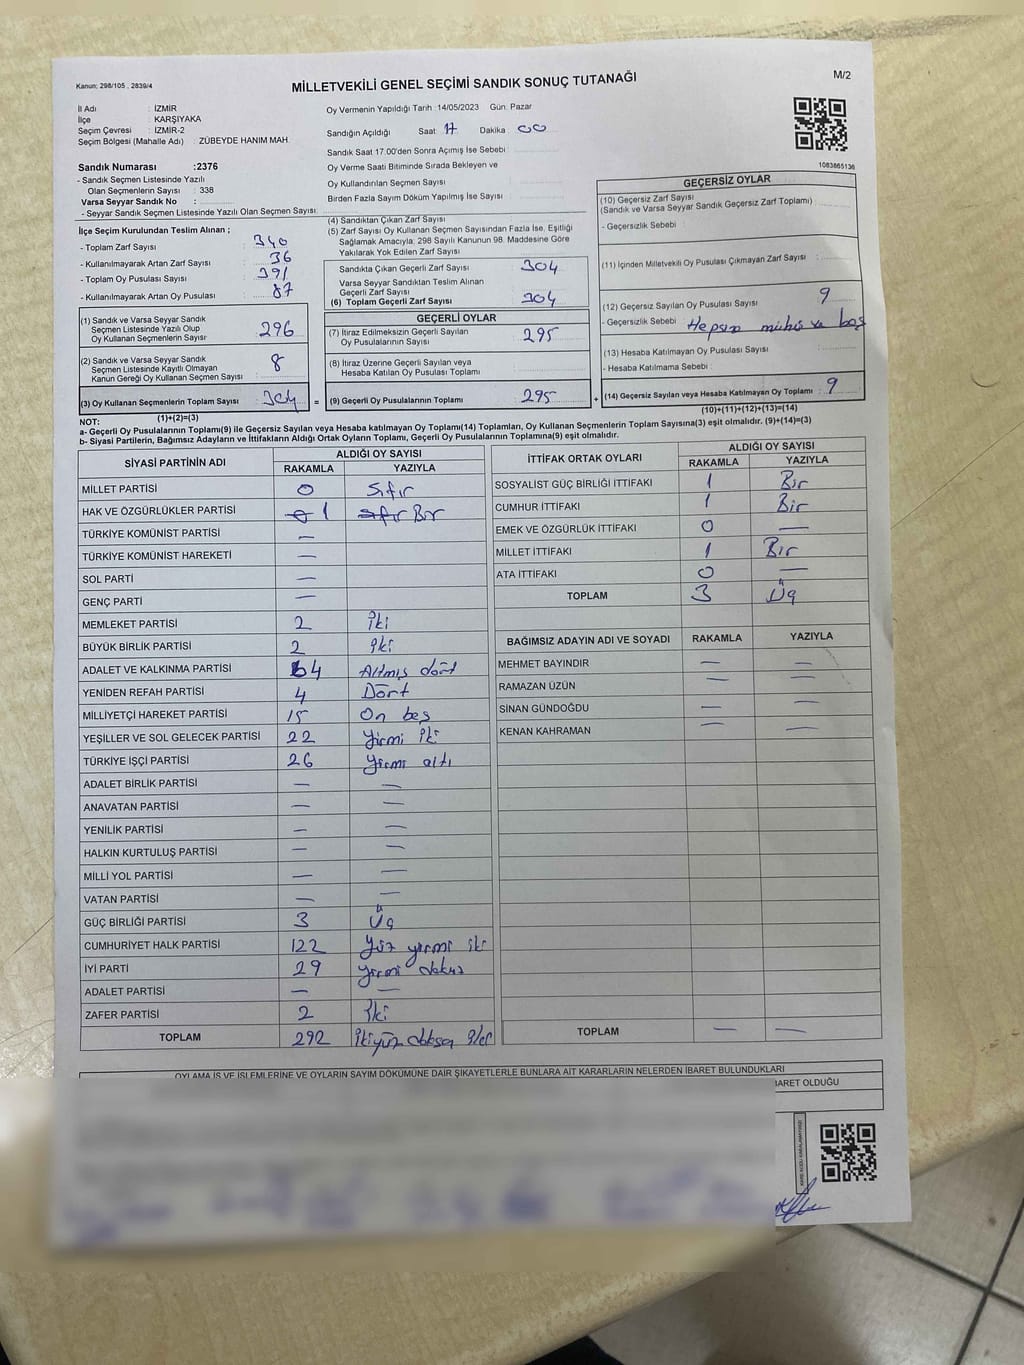 Kanun: 298/105 , 2839/4
MİLLETVEKİLİ GENEL SEÇİMİ SANDIK SONUÇ TUTANAĞI
M/2
İl Adı : İZMİR
İlçe : KARŞIYAKA
Seçim Çevresi : İZMİR-2
Seçim Bölgesi (Mahalle Adı) : ZÜBEYDE HANIM MAH.
Sandık Numarası :2376
- Sandık Seçmen Listesinde Yazılı
Olan Seçmenlerin Sayısı : 338
Varsa Seyyar Sandık No :
- Seyyar Sandık Seçmen Listesinde Yazılı Olan Seçmen Sayısı:
Oy Vermenin Yapıldığı Tarih :14/05/2023 Gün: Pazar
Sandığın Açıldığı Saat 17 Dakika : 00
Sandık Saat 17.00'den Sonra Açımış İse Sebebi :
Oy Verme Saati Bitiminde Sırada Bekleyen ve
Oy Kullandırılan Seçmen Sayısı :
Birden Fazla Sayım Dökum Yapılmış İse Sayısı :
1083865136
İlçe Seçim Kurulundan Teslim Alınan ;
- Toplam Zarf Sayısı : 340
- Kullanılmayarak Artan Zarf Sayısı : 36
- Toplam Oy Pusulası Sayısı : 391
- Kullanılmayarak Artan Oy Pusulası : 87
(1) Sandık ve Varsa Seyyar Sandık
Seçmen Listesinde Yazılı Olup
Oy Kullanan Seçmenlerin Sayısı : 296
(2) Sandık ve Varsa Seyyar Sandık
Seçmen Listesinde Kayıtlı Olmayan
Kanun Gereği Oy Kullanan Seçmen Sayısı : 8
(3) Oy Kullanan Seçmenlerin Toplam Sayısı : 304 =
(1)+(2)=(3)
(4) Sandıktan Çıkan Zarf Sayısı :
(5) Zarf Sayısı Oy Kullanan Seçmen Sayısından Fazla İse, Eşitliği
Sağlamak Amacıyla, 298 Sayılı Kanunun 98. Maddesine Göre
Yakılarak Yok Edilen Zarf Sayısı :
Sandıkta Çıkan Geçerli Zarf Sayısı : 304
Varsa Seyyar Sandıktan Teslim Alınan
Geçerli Zarf Sayısı :
(6) Toplam Geçerli Zarf Sayısı : 304
GEÇERLİ OYLAR
(7) İtiraz Edilmeksizin Geçerli Sayılan
Oy Pusulalarının Sayısı : 295
(8) İtiraz Üzerine Geçerli Sayılan veya
Hesaba Katılan Oy Pusulası Toplamı :
(9) Geçerli Oy Pusulalarının Toplamı : 295 +
GEÇERSİZ OYLAR
(10) Geçersiz Zarf Sayısı
(Sandık ve Varsa Seyyar Sandık Geçersiz Zarf Toplamı) :
- Geçersizlik Sebebi :
(11) İçinden Milletvekili Oy Pusulası Çıkmayan Zarf Sayısı :
(12) Geçersiz Sayılan Oy Pusulası Sayısı : 9
- Geçersizlik Sebebi : ve boş
(13) Hesaba Katılmayan Oy Pusulası Sayısı :
- Hesaba Katılmama Sebebi :
(14) Geçersiz Sayılan veya Hesaba Katılmayan Oy Toplamı : 9
(10)+(11)+(12)+(13)=(14)
NOT:
a- Geçerli Oy Pusulalarının Toplamı(9) ile Geçersiz Sayılan veya Hesaba katılmayan Oy Toplamı(14) Toplamları, Oy Kullanan Seçmenlerin Toplam Sayısına(3) eşit olmalıdır. (9)+(14)=(3)
b- Siyasi Partilerin, Bağımsız Adayların ve İttifakların Aldığı Ortak Oyların Toplamı, Geçerli Oy Pusulalarının Toplamına(9) eşit olmalıdır.
SİYASİ PARTİNİN ADI ALDIĞI OY SAYISI
RAKAMLA YAZIYLA
MİLLET PARTİSİ 0 Sıfır
HAK VE ÖZGÜRLÜKLER PARTİSİ 0 1 Sıfır Bir
TÜRKİYE KOMÜNİST PARTİSİ —
TÜRKİYE KOMÜNİST HAREKETİ —
SOL PARTİ —
GENÇ PARTİ —
MEMLEKET PARTİSİ 2 İki
BÜYÜK BİRLİK PARTİSİ 2 İki
ADALET VE KALKINMA PARTİSİ 64 Altmış dört
YENİDEN REFAH PARTİSİ 4 Dört
MİLLİYETÇİ HAREKET PARTİSİ 15 On beş
YEŞİLLER VE SOL GELECEK PARTİSİ 22 Yirmi İki
TÜRKİYE İŞÇİ PARTİSİ 26 Yirmi altı
ADALET BİRLİK PARTİSİ — —
ANAVATAN PARTİSİ — —
YENİLİK PARTİSİ — —
HALKIN KURTULUŞ PARTİSİ — —
MİLLİ YOL PARTİSİ — —
VATAN PARTİSİ — —
GÜÇ BİRLİĞİ PARTİSİ 3 Üç
CUMHURİYET HALK PARTİSİ 122 Yüz yirmi iki
İYİ PARTİ 29 Yirmi dokuz
ADALET PARTİSİ — —
ZAFER PARTİSİ 2 İki
TOPLAM 292 İkiyüz doksan iki
İTTİFAK ORTAK OYLARI ALDIĞI OY SAYISI
RAKAMLA YAZIYLA
SOSYALİST GÜÇ BİRLİĞİ İTTİFAKI 1 Bir
CUMHUR İTTİFAKI 1 Bir
EMEK VE ÖZGÜRLÜK İTTİFAKI 0 —
MİLLET İTTİFAKI 1 Bir
ATA İTTİFAKI 0 —
TOPLAM 3 Üç
BAĞIMSIZ ADAYIN ADI VE SOYADI RAKAMLA YAZIYLA
MEHMET BAYINDIR — —
RAMAZAN ÜZÜN — —
SİNAN GÜNDOĞDU — —
KENAN KAHRAMAN — —
TOPLAM — —
OYLAMA İŞ VE İŞLEMLERİNE VE OYLARIN SAYIM DÖKÜMÜNE DAİR ŞİKAYETLERLE BUNLARA AİT KARARLARIN NELERDEN İBARET BULUNDUKLARI
BARET OLDUĞU